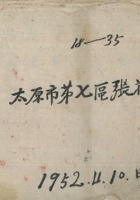 18—35
太原市第七區張
1952.11.10.日